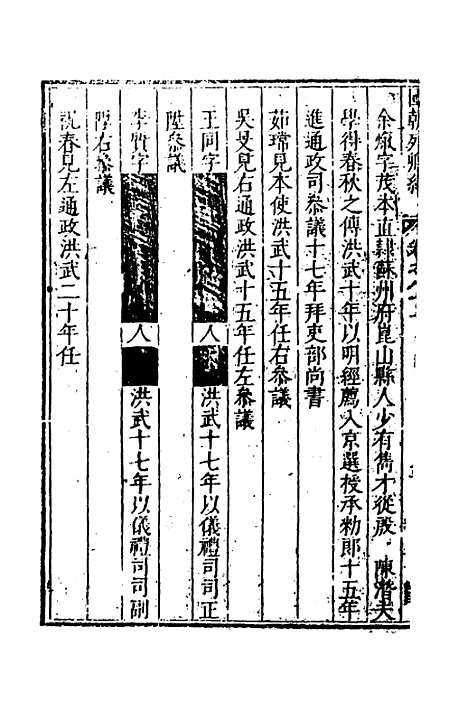 國朝列卿紀
余熂字茂本直隸蘇州府崑山縣人少有雋才從殷陳潛夫
學得春秋之傳洪武十年以明經薦入京選授承勑郎十五年
進通政司叅議十七年拜吏部尚書
茹瑺見本使洪武十五年任右叅議
吳旻見右通政洪武十五年任左叅議
王同字 人 洪武十七年以儀禮司司正
陞叅議
李貫字 人 洪武十七年以儀禮司司副
陞右叅議
祝春見左通政洪武二十年任